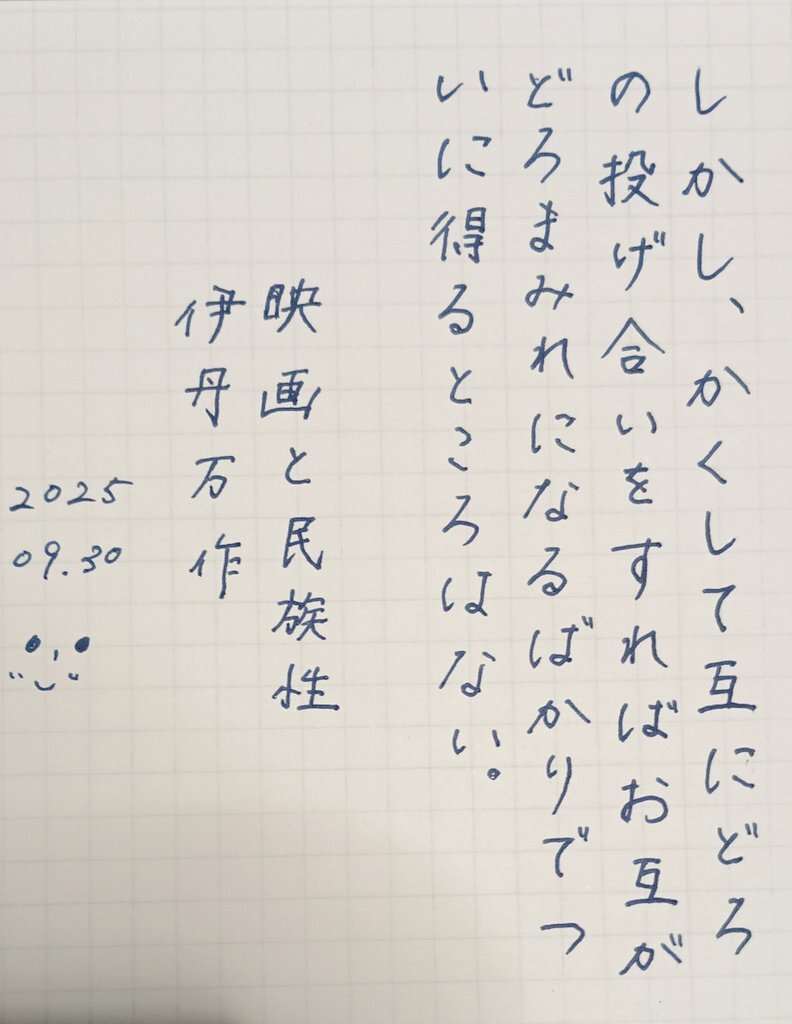 しかし、かくして互にどろ
の投げ合いをすればお互が
どろまみれになるばかりでつ
いに得るところはない。
映画と民族性
伊丹万作
2025
09.30